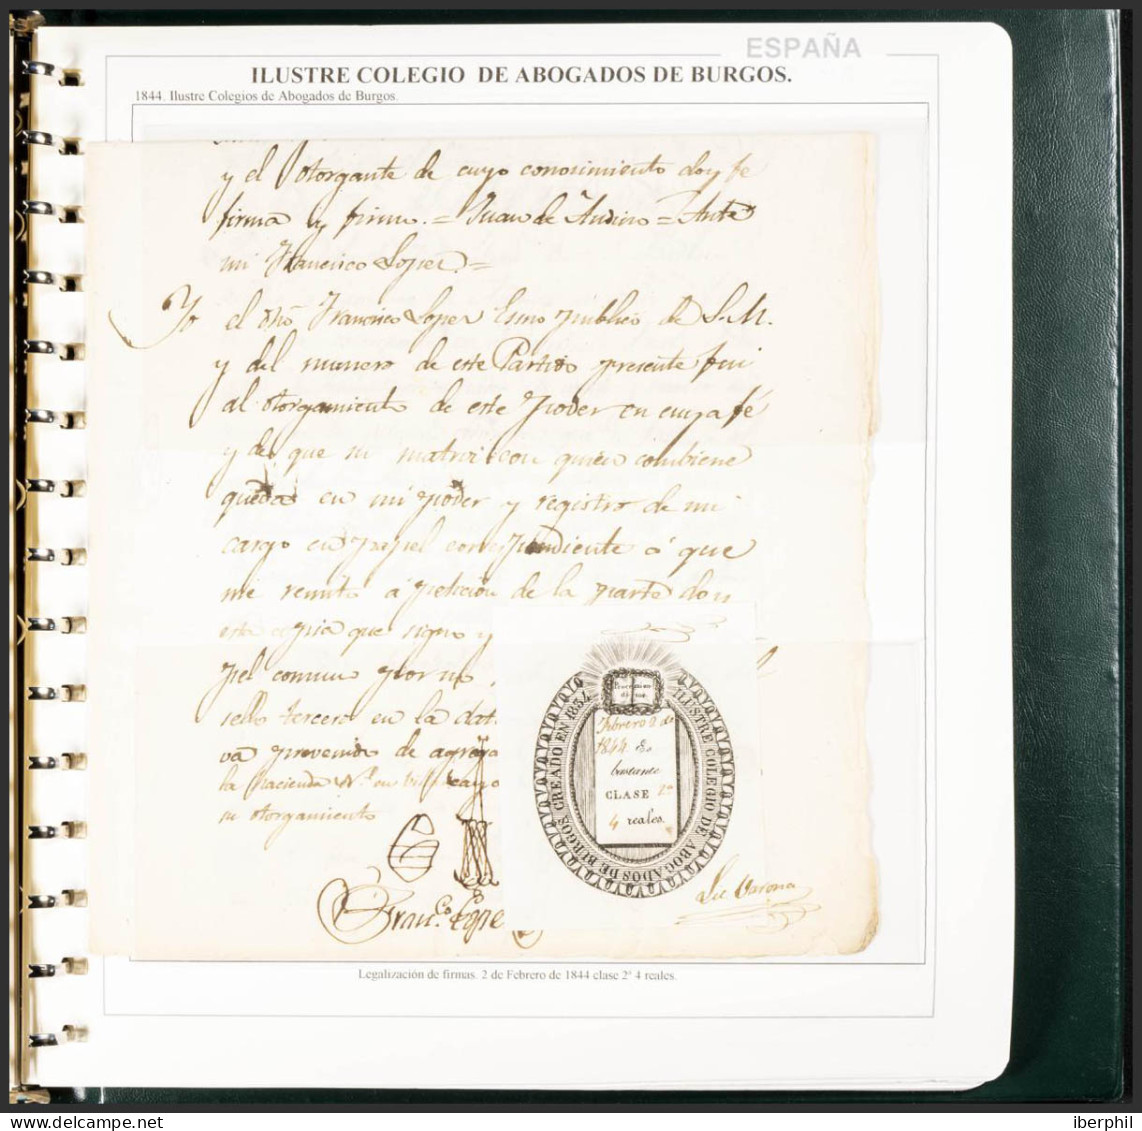 ESPAÑA
ILUSTRE COLEGIO DE ABOGADOS DE BURGOS.
1844. Ilustre Colegios de Abogados de Burgos.
y el otorgante de cuyo conocimiento doy fe
firma y firmo.= Juan de Andino = Ante
mi Francisco Lopez.=
Yo el dho Francisco Lopez Esno publico de S.M.
y del numero de este Partido presente fui
al otorgamiento de este Poder en cuya fé
y de que su matriz con quien combiene
queda en mi poder y registro de mi
cargo en papel correspondiente á que
me remito á peticion de la parte doy
esta copia que signo y
pel comun por no
sello tercero en la data
va prevenido de agrega
la Hacienda Nl. en
su otorgamiento
Franco. Lope
CREADO EN 1834
ILUSTRE COLEGIO DE ABOGADOS DE BURGOS
Febrero 2 de
1844. Es
bastante
CLASE 2a
4 reales.
Lic Varona
Legalización de firmas. 2 de Febrero de 1844 clase 2ª 4 reales.
iberphil